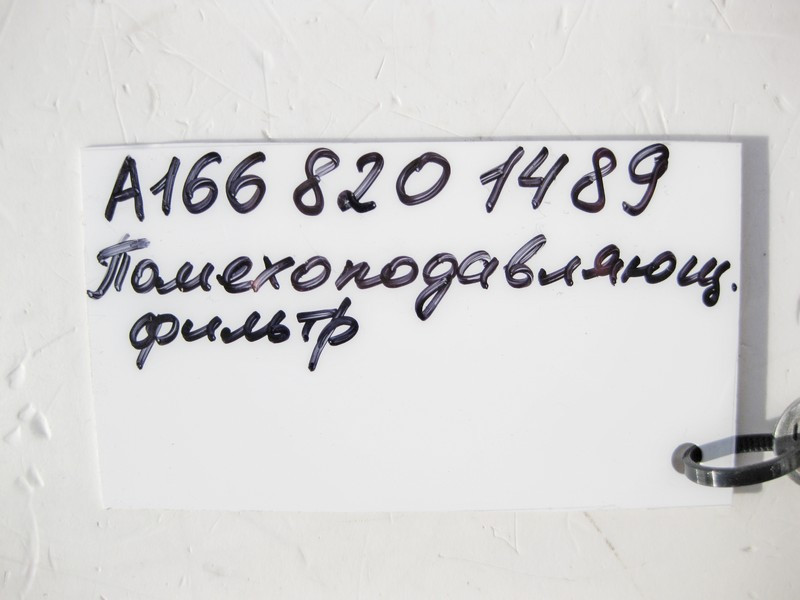 A166 820 1489
Помехоподавляющ.
фильтр